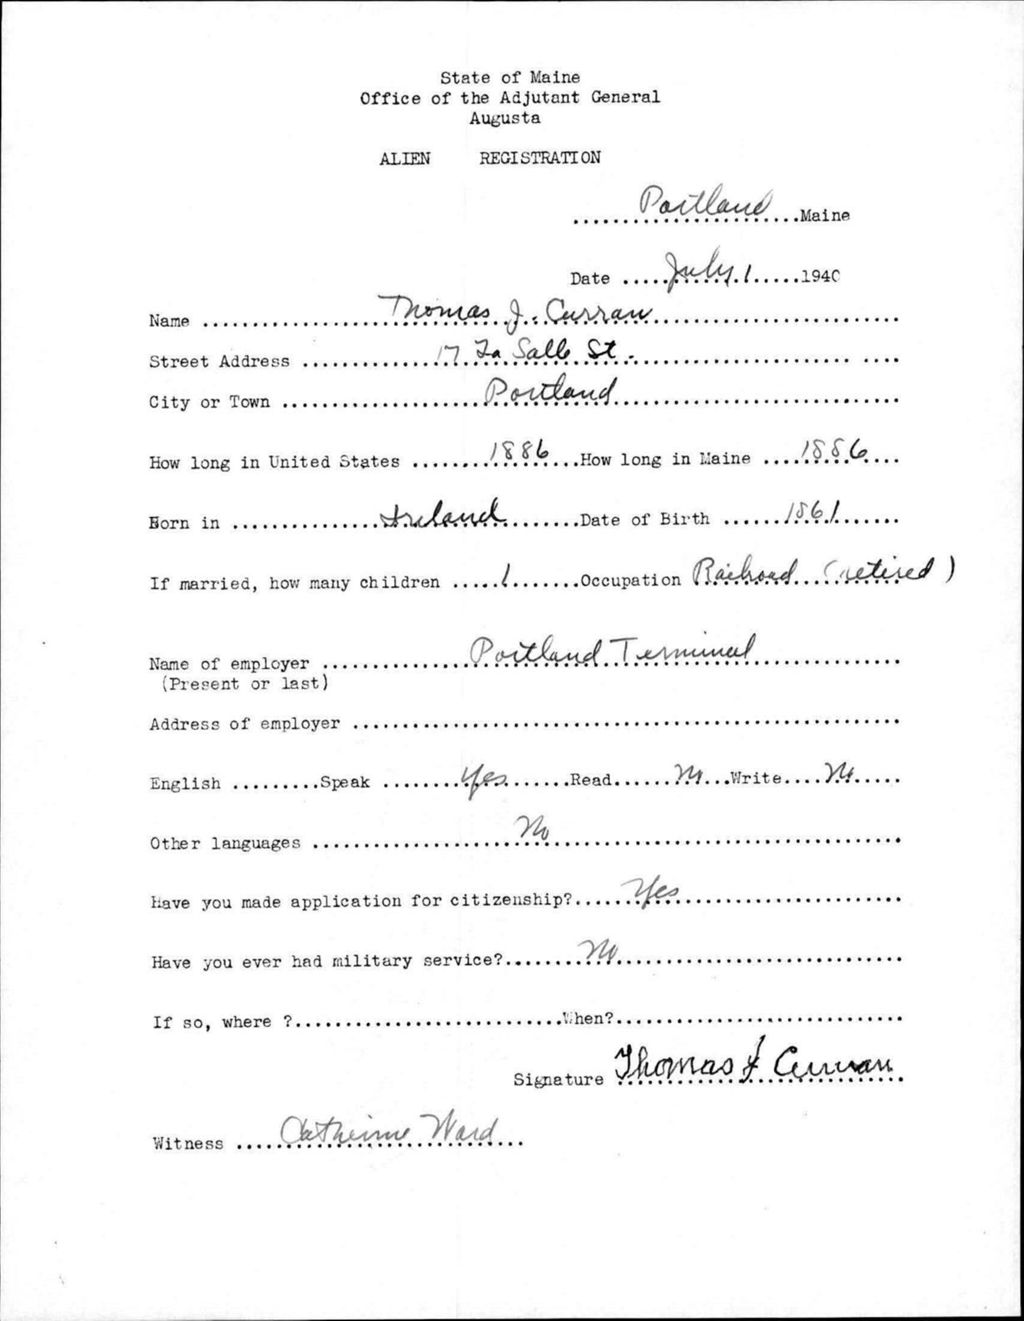 State of Maine
Office of the Adjutant General
Augusta
ALIEN REGISTRATION
Portland Maine
Date July 1 1940
Name Thomas J. Curran
Street Address 17 La Salle St.
City or Town Portland
How long in United States 1886 How long in Maine 1886
Born in Ireland Date of Birth 1861
If married, how many children 1 Occupation Railroad (retired)
Name of employer Portland Terminal
(Present or last)
Address of employer
English Speak Yes Read No Write No
Other languages No
Have you made application for citizenship? Yes
Have you ever had military service? No
If so, where ? When?
Signature Thomas J Curran
Witness Catherine Ward